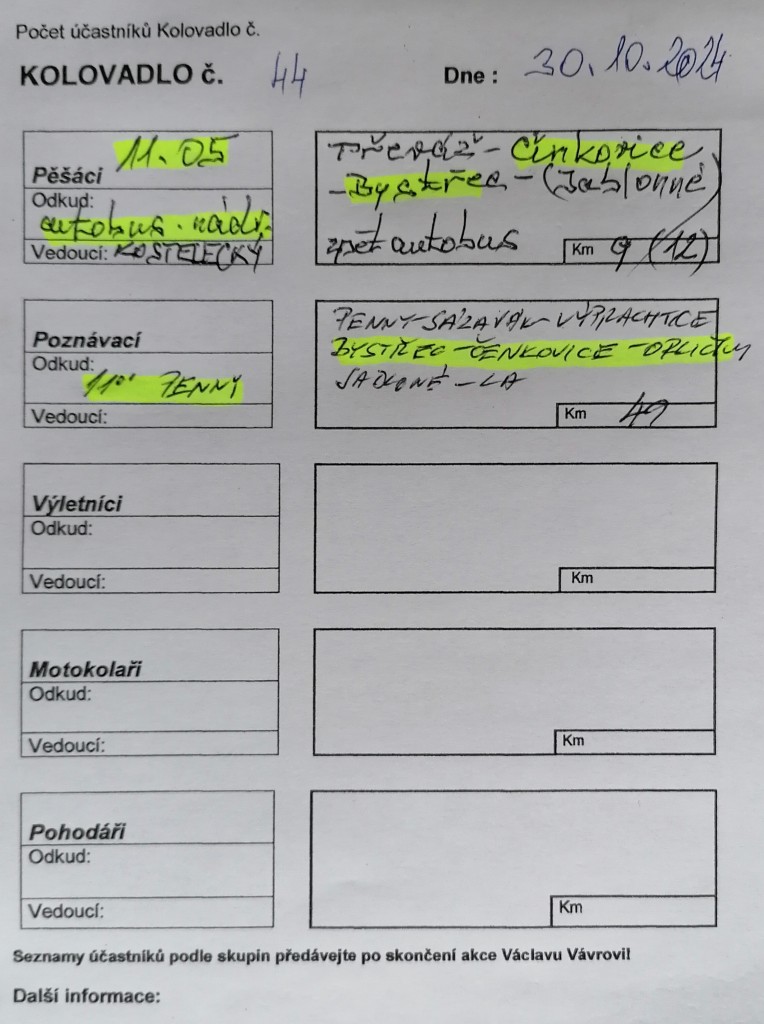 Počet účastníků Kolovadlo č.
KOLOVADLO č. 44 Dne : 30.10.2024
11.05
Pěšáci
Odkud:
autobus. nádr.
Vedoucí: KOSTELECKÝ
Převáž - Činkovice
- Bystřec - (Jablonné
zpět autobus
Km 9 (12)
Poznávací
Odkud:
11⁰⁰ PENNY
Vedoucí:
PENNY-SÁZAVA- VÝPRACHTICE
BYSTŘEC-ČENKOVICE-ORLIČKY
JABLONÉ - LA
Km 49
Výletníci
Odkud:
Vedoucí:
Km
Motokolaři
Odkud:
Vedoucí:
Km
Pohodáři
Odkud:
Vedoucí:
Km
Seznamy účastníků podle skupin předávejte po skončení akce Václavu Vávrovi!
Další informace: